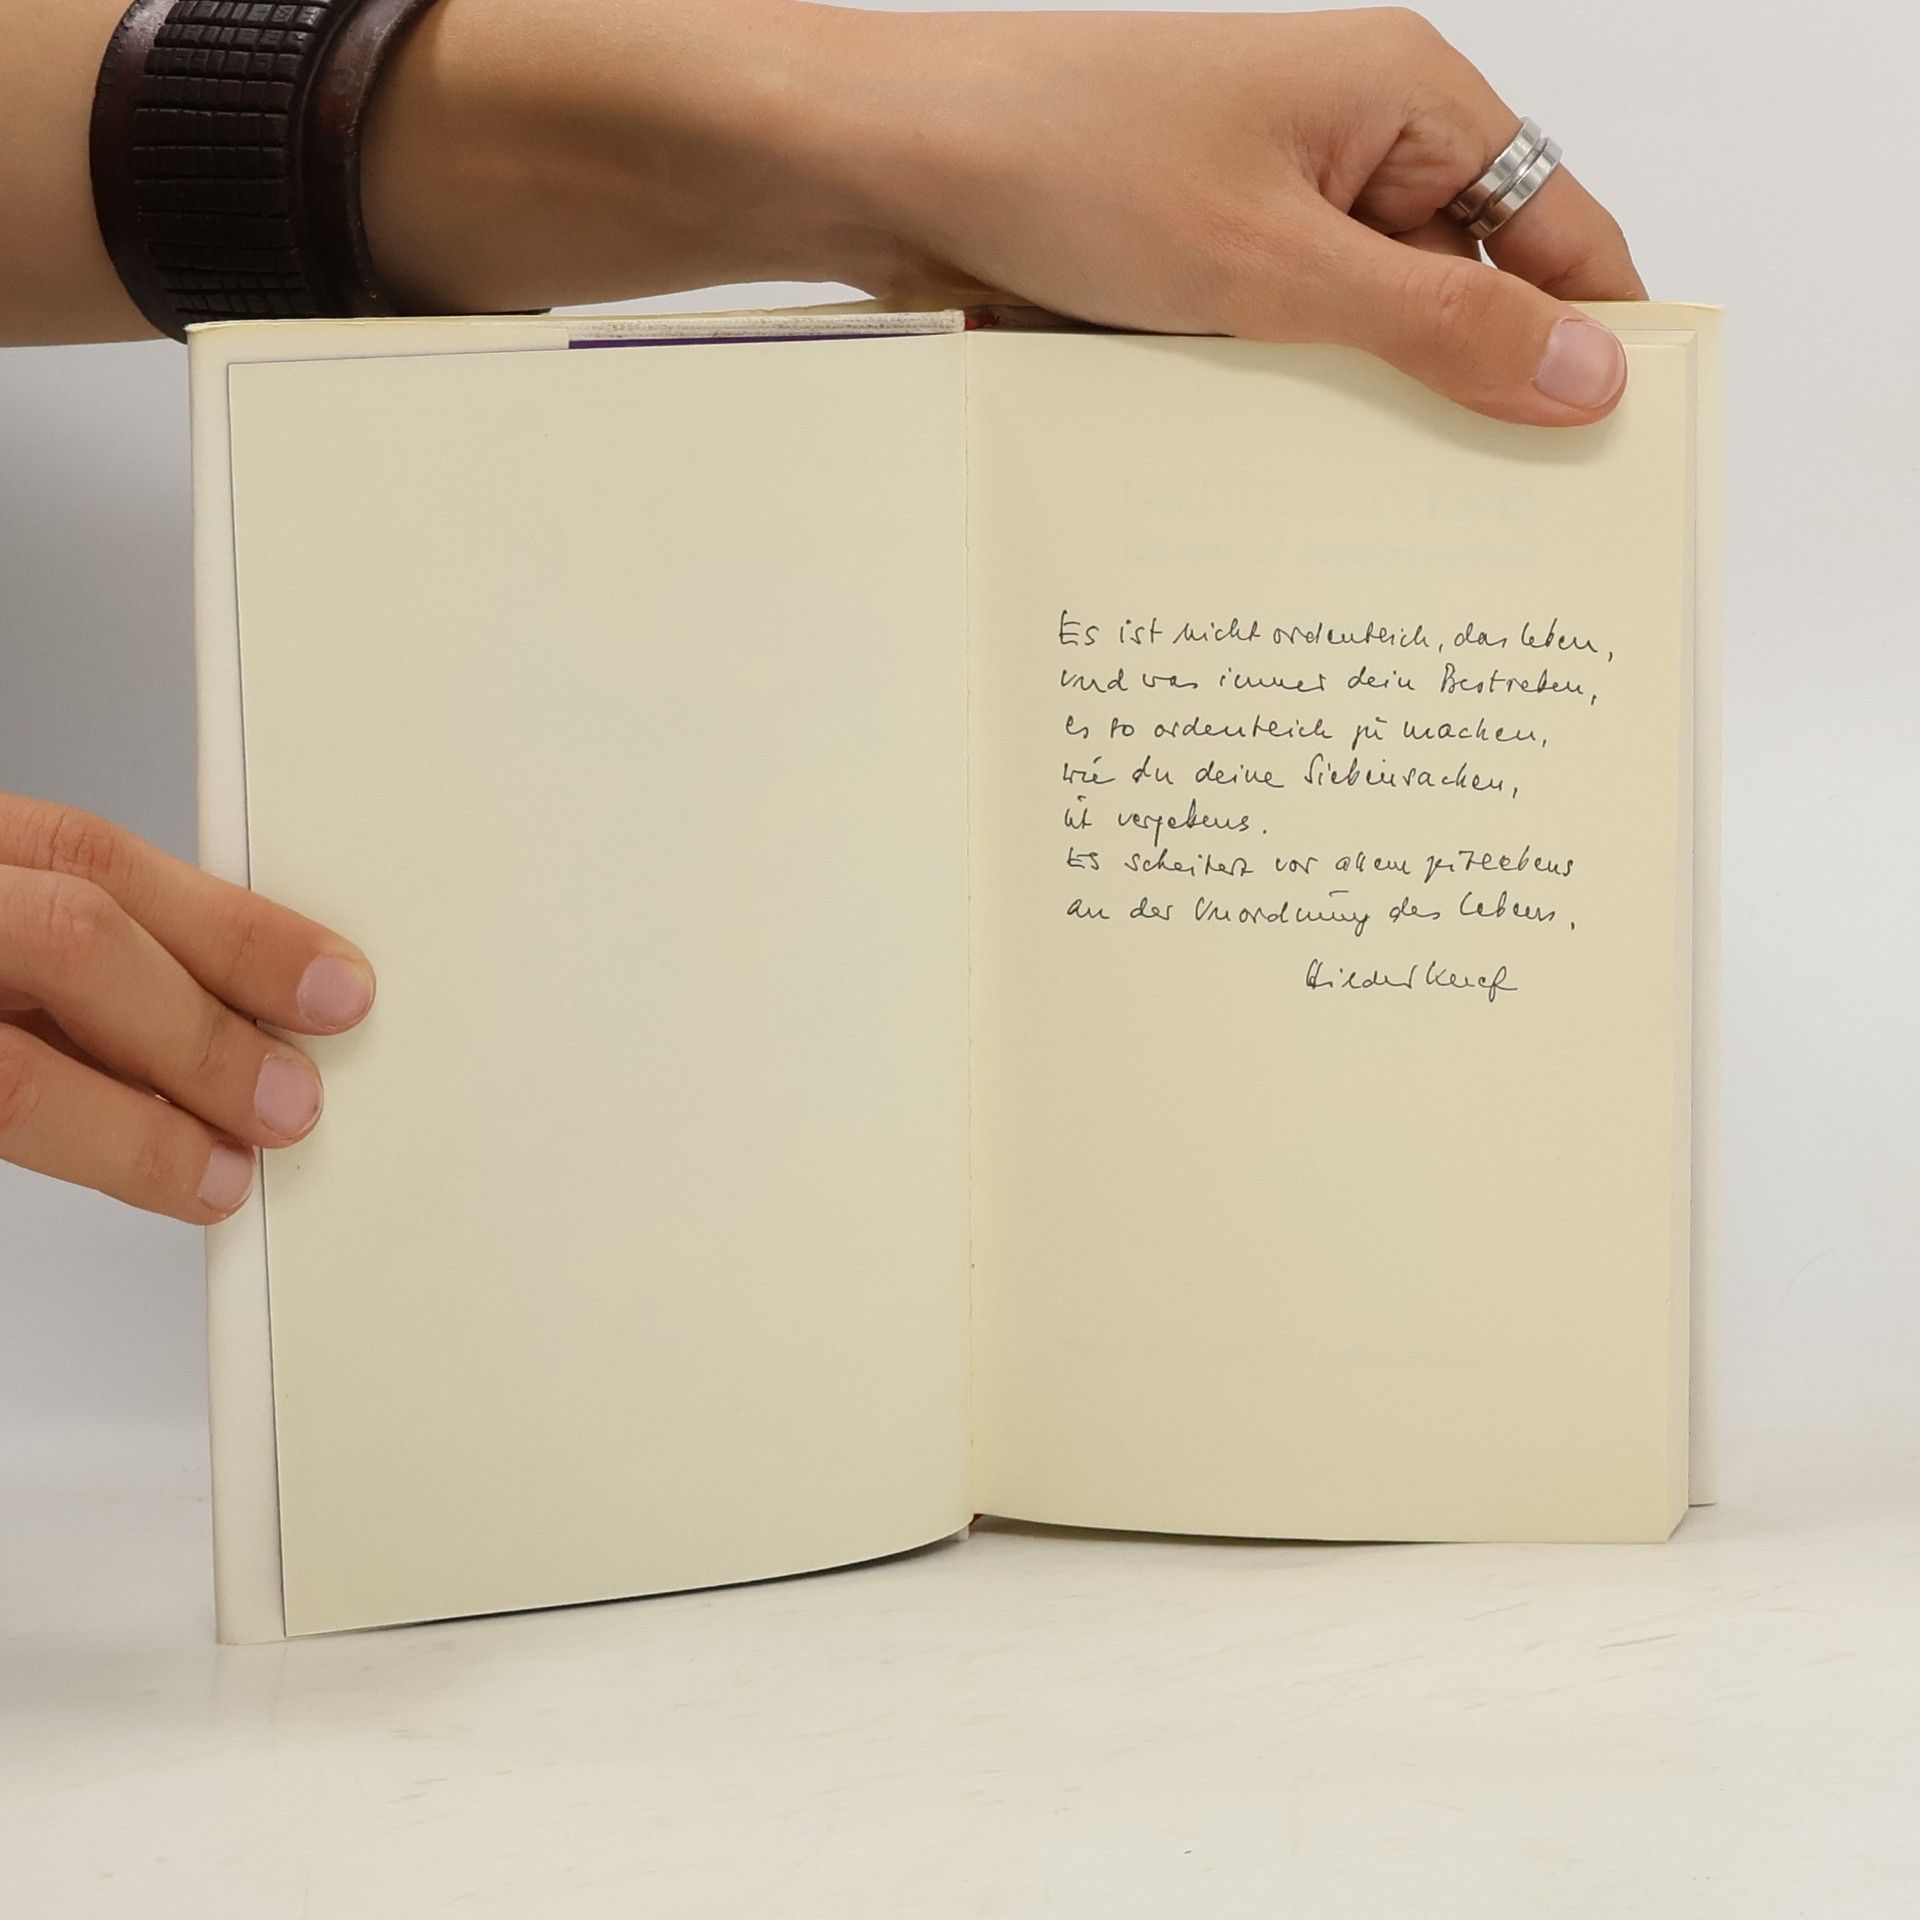 Es ist nicht ordentlich, das Leben,
und was immer dein Bestreben,
es so ordentlich zu machen,
wie du deine Siebensachen,
ist vergebens.
Es scheitert vor allem zeitlebens
an der Unordnung des Lebens.
Hildegard Knef